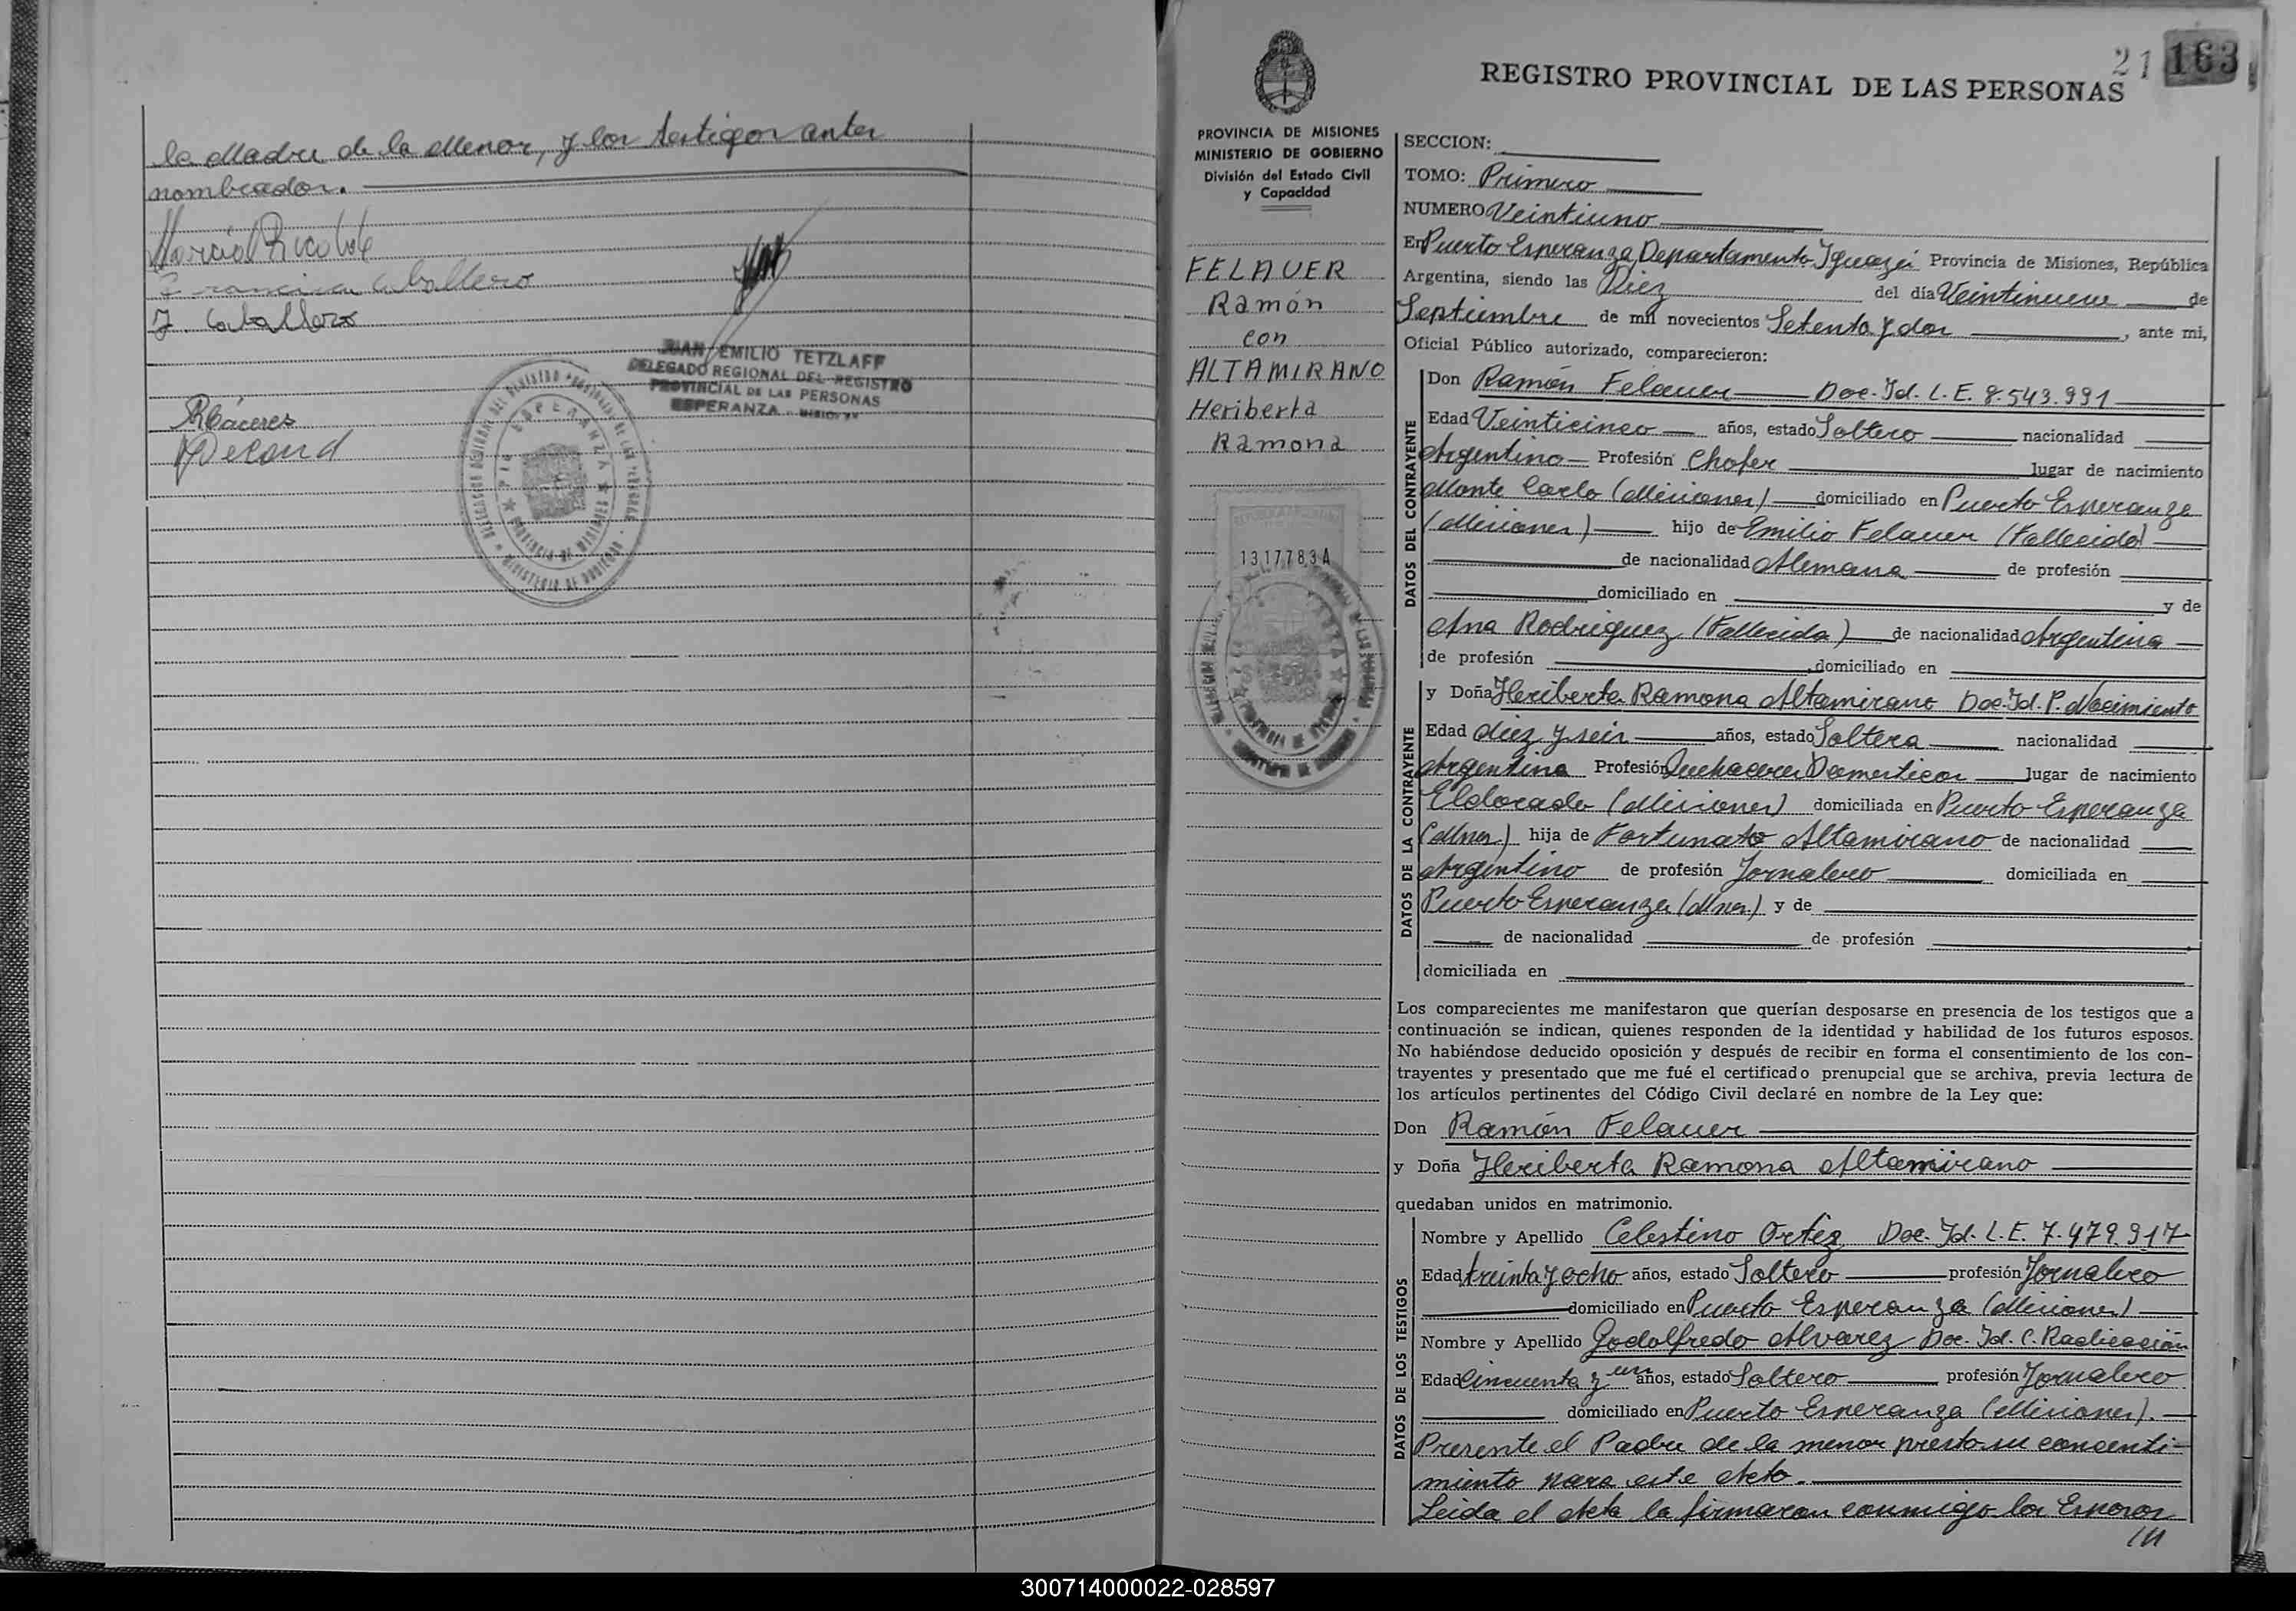 la Madre de la Menor, y los testigos antes
nombrados.
Francisca Caballero
J. Caballero
JUAN EMILIO TETZLAFF
DELEGADO REGIONAL DEL REGISTRO
PROVINCIAL DE LAS PERSONAS
ESPERANZA - MISIONES
RCáceres
21 163
REGISTRO PROVINCIAL DE LAS PERSONAS
PROVINCIA DE MISIONES
MINISTERIO DE GOBIERNO
División del Estado Civil
y Capacidad
FELAUER
Ramón
con
ALTAMIRANO
Heriberta
Ramona
1317783A
SECCION:
TOMO: Primero
NUMERO Veintiuno
En Puerto Esperanza, Departamento Iguazú Provincia de Misiones, República
Argentina, siendo las Diez del día Veintinueve de
Septiembre de mil novecientos Setenta y dos, ante mi,
Oficial Público autorizado, comparecieron:
DATOS DEL CONTRAYENTE
Don Ramón Felauer Doc. Id. L.E. 8.543.991
Edad Veinticinco años, estado Soltero nacionalidad
Argentino Profesión Chofer lugar de nacimiento
Monte Carlo (Misiones) domiciliado en Puerto Esperanza
(Misiones) hijo de Emilio Felauer (Fallecido)
de nacionalidad Alemana de profesión
domiciliado en y de
Ana Rodriguez (Fallecida) de nacionalidad Argentina
de profesión domiciliado en
DATOS DE LA CONTRAYENTE
y Doña Heriberta Ramona Altamirano Doc. Id. P. Nacimiento
Edad diez y seis años, estado Soltera nacionalidad
Argentina Profesión Quehaceres Domesticos lugar de nacimiento
Eldorado (Misiones) domiciliada en Puerto Esperanza
(Mnes.) hija de Fortunato Altamirano de nacionalidad
Argentino de profesión Jornalero domiciliada en
Puerto Esperanza (Mnes.) y de
de nacionalidad de profesión
domiciliada en
Los comparecientes me manifestaron que querían desposarse en presencia de los testigos que a
continuación se indican, quienes responden de la identidad y habilidad de los futuros esposos.
No habiéndose deducido oposición y después de recibir en forma el consentimiento de los con-
trayentes y presentado que me fué el certificado prenupcial que se archiva, previa lectura de
los artículos pertinentes del Código Civil declaré en nombre de la Ley que:
Don Ramón Felauer
y Doña Heriberta Ramona Altamirano
quedaban unidos en matrimonio.
DATOS DE LOS TESTIGOS
Nombre y Apellido Celestino Ortiz Doc. Id. L.E. 7.479.917
Edad treinta y ocho años, estado Soltero profesión Jornalero
domiciliado en Puerto Esperanza (Misiones)
Nombre y Apellido Godolfredo Alvarez Doc. Id. C. Radicación
Edad Cincuenta y un años, estado Soltero profesión Jornalero
domiciliado en Puerto Esperanza (Misiones).
Presente el Padre de la menor presto su consenti-
miento para este Acto.
Leida el Acta la firmaron conmigo los Esposos
///
300714000022-028597